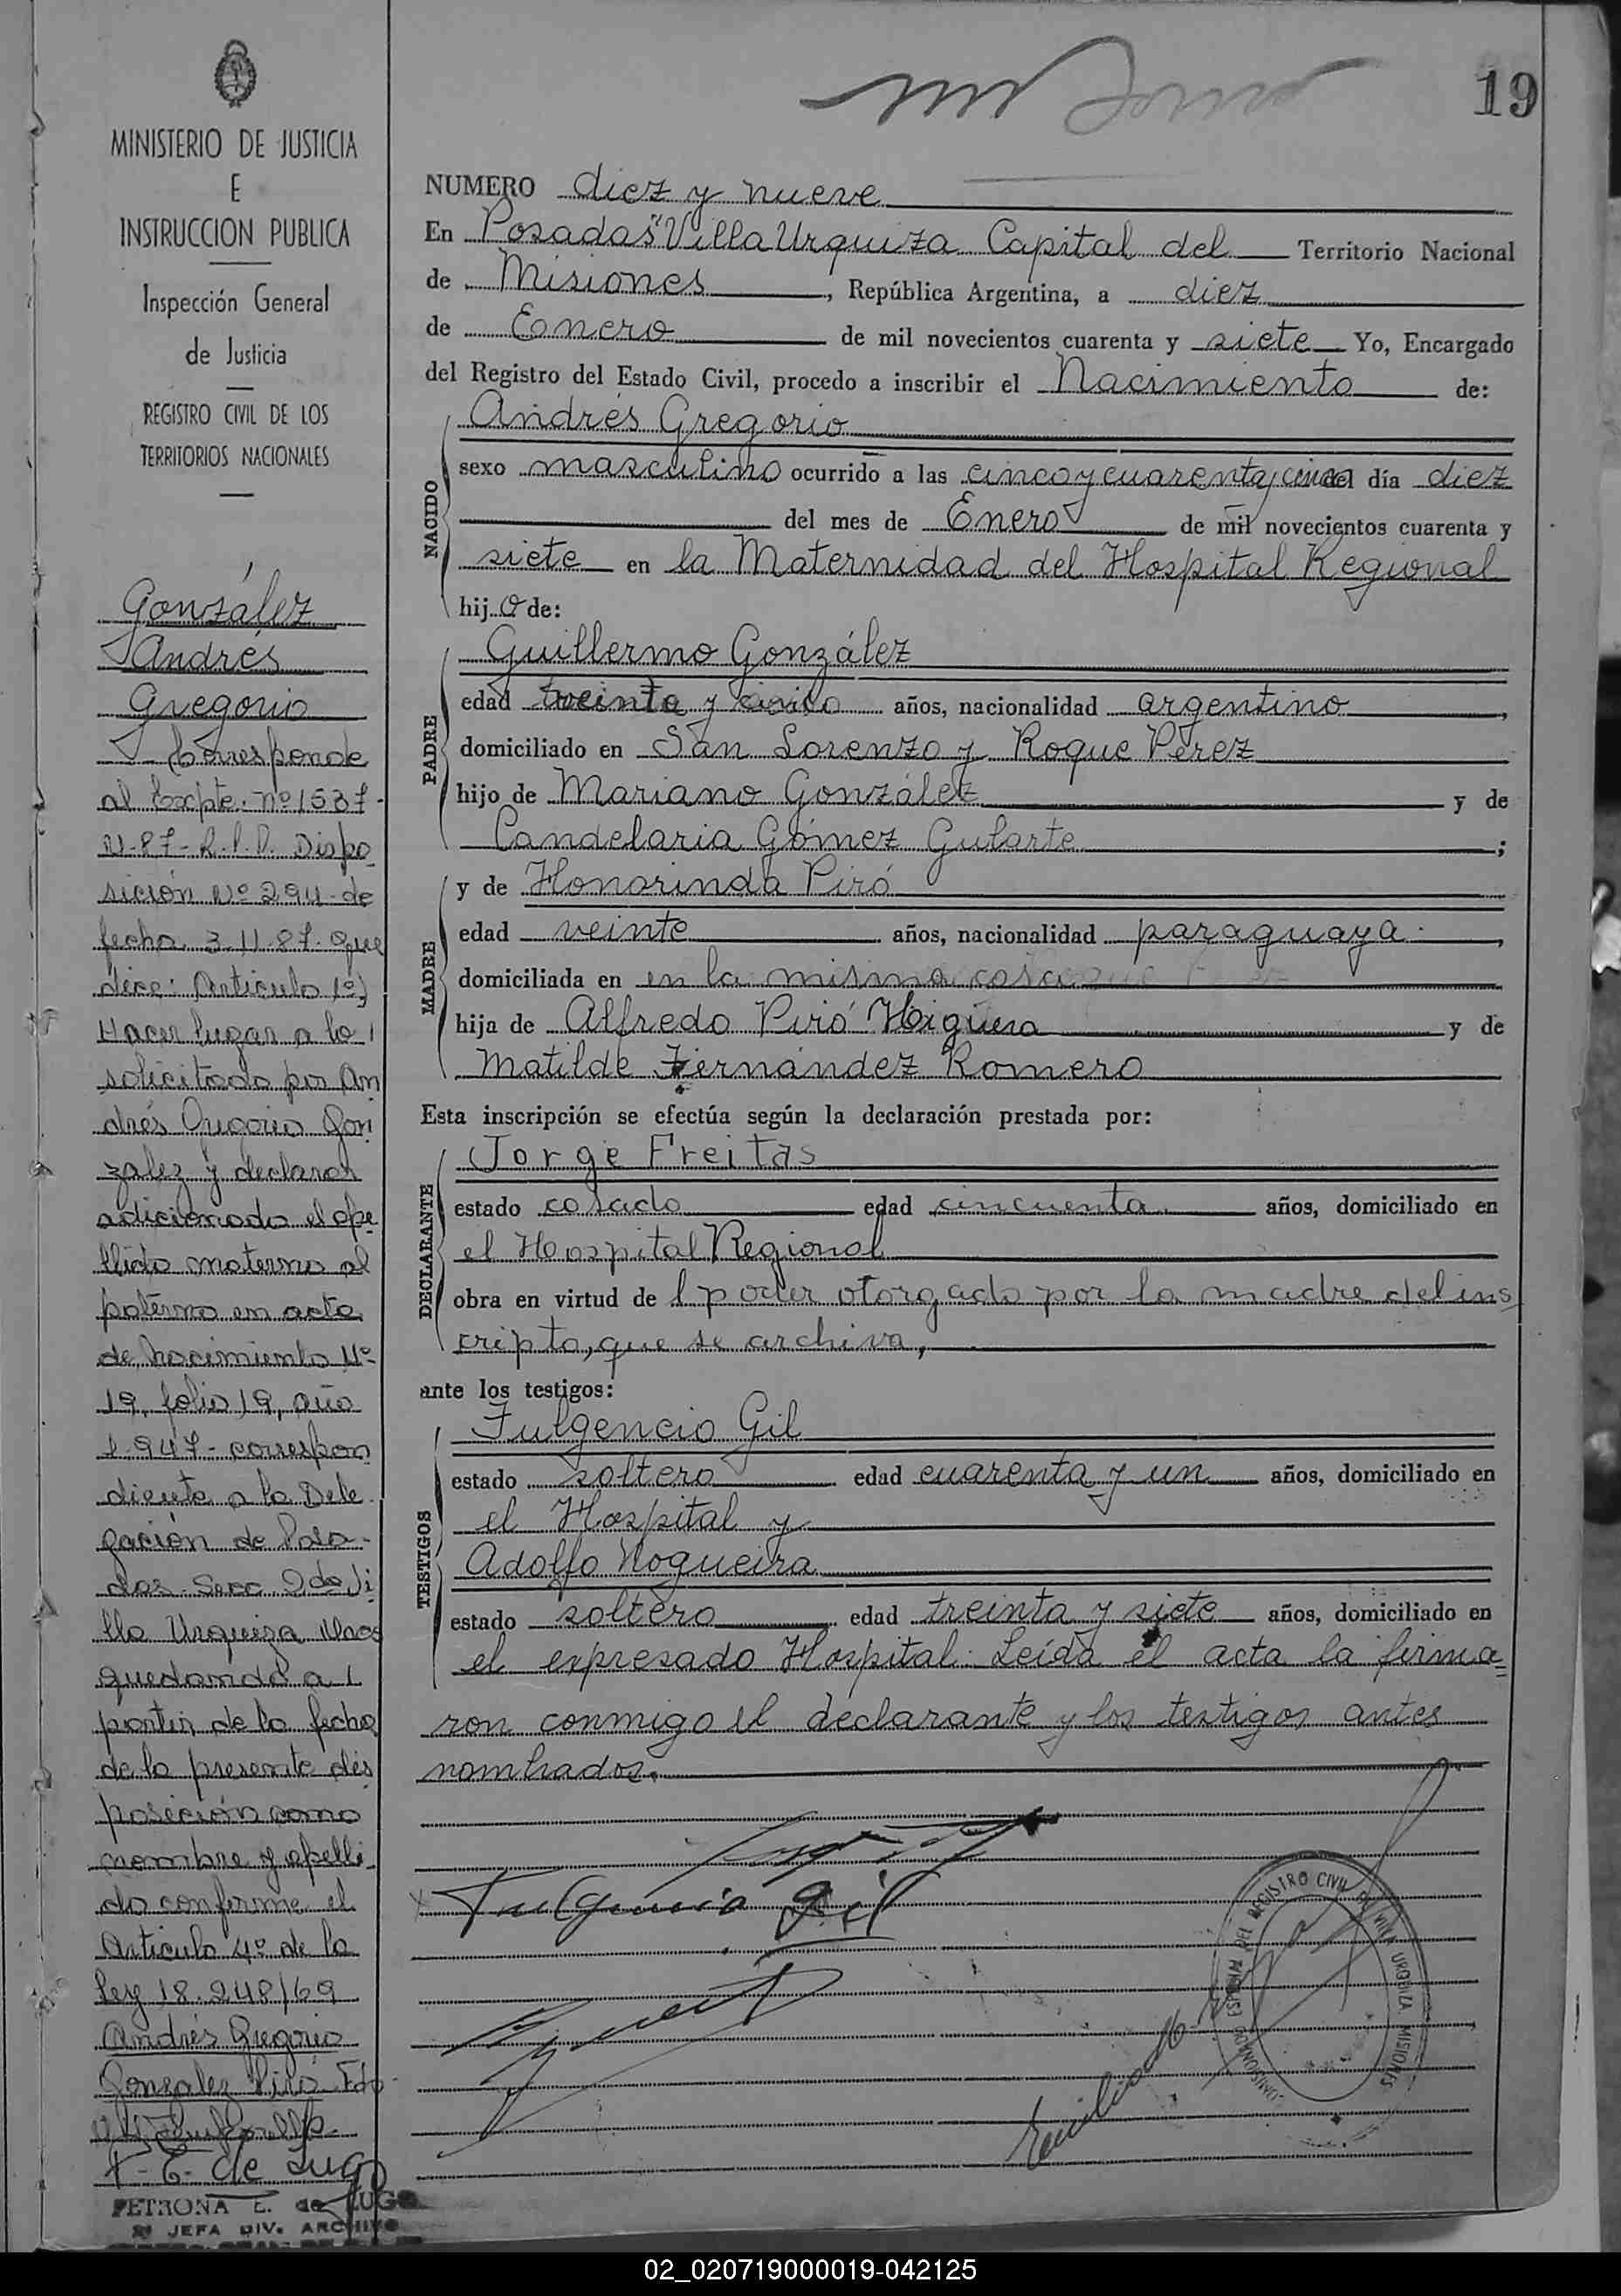 19
MINISTERIO DE JUSTICIA
E
INSTRUCCION PUBLICA
Inspección General
de Justicia
REGISTRO CIVIL DE LOS
TERRITORIOS NACIONALES
González
Andrés
Gregorio
Corresponde
al Expte. nº 1537-
U-87-R.P.P. Dispo
sición Nº 294-de
fecha 3.11.87. que
dice: Artículo 1º)
Hacer lugar a lo
solicitado por An
drés Gregorio Gon
zalez y declarar
adicionado el ape
llido materno al
paterno en acta
de Nacimiento Nº
19, folio 19, año
1.947- correspon
diente a la Dele
gación de Posa-
das Secc 2da Vi
lla Urquiza Mnes
quedando a
partir de la fecha
de la presente dis
posición como
nombre y apelli
do conforme el
Artículo 4º de la
ley 18.248/69
Andrés Gregorio
Gonzalez Piró Fdo
P. E. de Lugo
PETRONA E. de LUGO
JEFA DIV. ARCHIVO
NUMERO diez y nueve
En Posadas "Villa Urquiza Capital del Territorio Nacional
de Misiones, República Argentina, a diez
de Enero de mil novecientos cuarenta y siete Yo, Encargado
del Registro del Estado Civil, procedo a inscribir el Nacimiento de:
NACIDO
Andrés Gregorio
sexo masculino ocurrido a las cinco y cuarenta y cinco del día diez
del mes de Enero de mil novecientos cuarenta y
siete en la Maternidad del Hospital Regional
hijo de:
PADRE
Guillermo González
edad treinta y cinco años, nacionalidad argentino,
domiciliado en San Lorenzo y Roque Pérez
hijo de Mariano González y de
Candelaria Gómez Gularte;
MADRE
y de Honorinda Piró
edad veinte años, nacionalidad paraguaya,
domiciliada en en la misma casa
hija de Alfredo Piró Higuera y de
Matilde Fernández Romero
Esta inscripción se efectúa según la declaración prestada por:
DECLARANTE
Jorge Freitas
estado casado edad cincuenta años, domiciliado en
el Hospital Regional
obra en virtud de l poder otorgado por la madre del ins
cripto, que se archiva,
ante los testigos:
TESTIGOS
Fulgencio Gil
estado soltero edad cuarenta y un años, domiciliado en
el Hospital y
Adolfo Nogueira
estado soltero edad treinta y siete años, domiciliado en
el expresado Hospital. Leída el acta la firma=
ron conmigo el declarante y los testigos antes
nombrados.
Fulgencio Gil
DEL REGISTRO CIVIL DE VILLA URQUIZA MISIONES
02_020719000019-042125